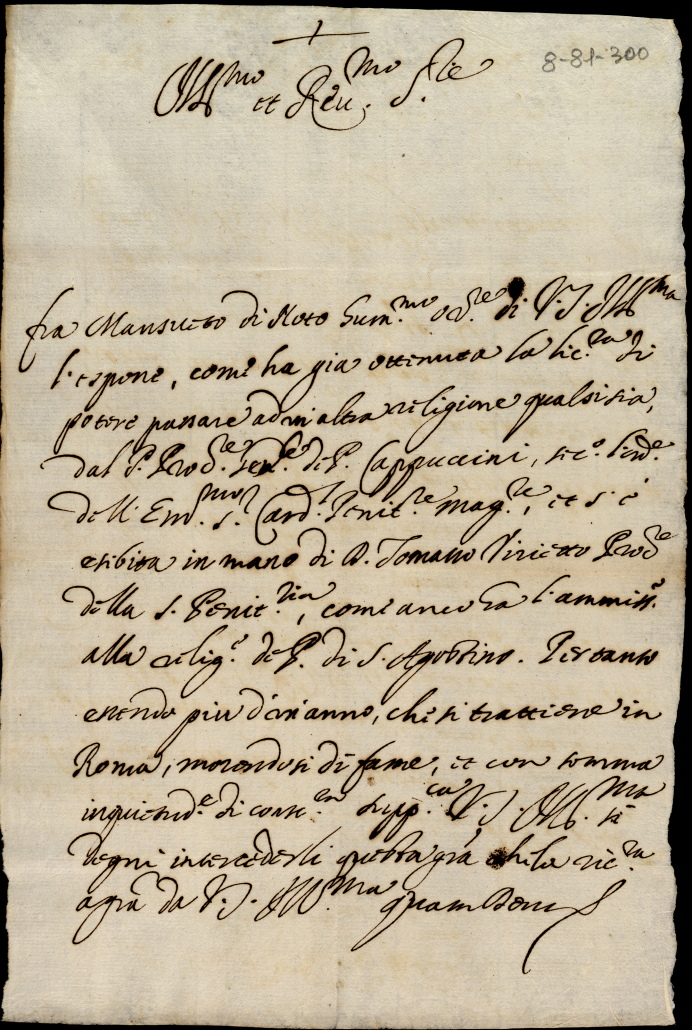 8-81-300
Ill.mo et Reu.mo S.re
fra Mansueto di Noto hum.mo or.re di V.S. Ill.ma
l'espone, come ha già ottenuta la lic.za di
potere passare ad un'altra religione qualsisia,
dal P. Proc.re Gen.le de P. Cappuccini, sec.o l'ord.e
dell' Em.mo S.r Card.l Penit.re mag.re, et s'è
esibita in mano di D. Tomasso Proc.re
della S. Penit.ria, come ancora l'ammiss.e
alla relig.e de P. di S. Agostino. Pertanto
essendo piu d'un anno, che si trattiene in
Roma, morendosi di fame, et con somma
inquietud.e di cosc.za supp.ca V.S. Ill.ma si
degni intercederli questa gra, che la ric.rà
a gra da V.S. Ill.ma quam Deus